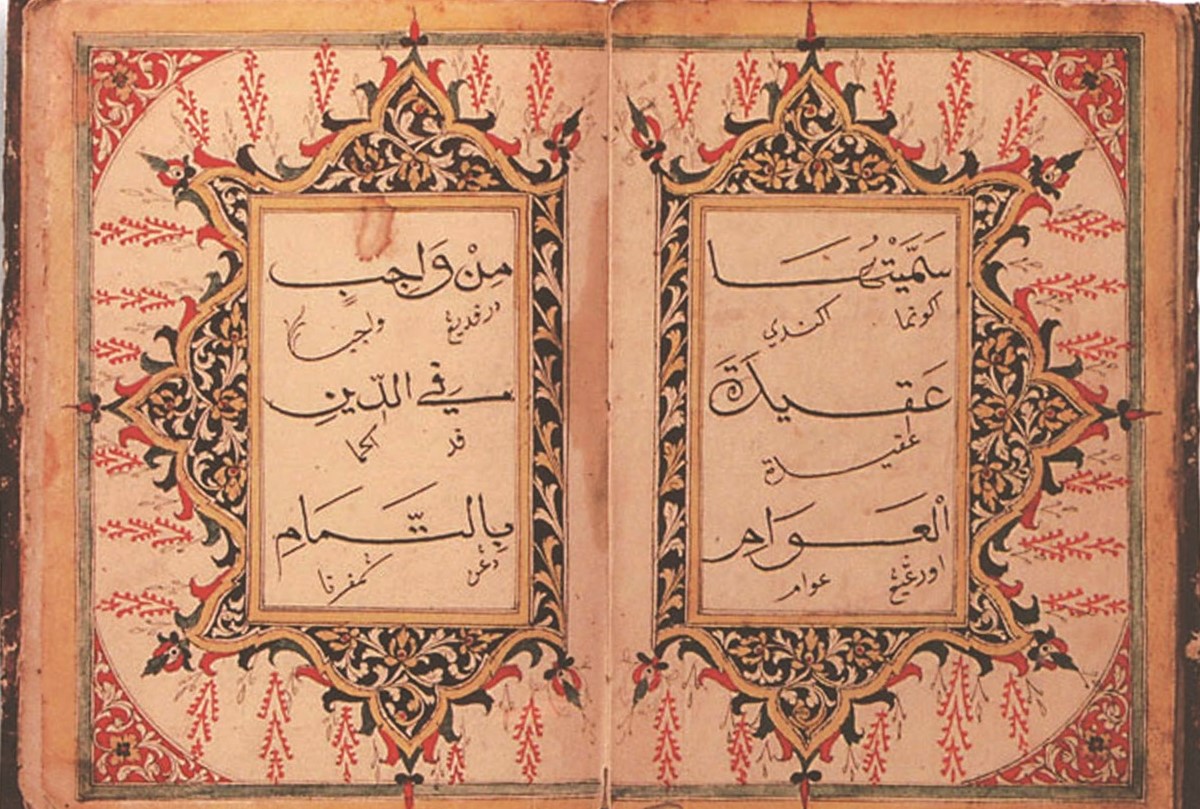 سَمَّيْتُهَا
اكونما اكندي
عَقِيدَة
عقيدة
اَلْعَوَامِ
اورڠيڠ عوام
مِنْ وَاجِبٍ
درفديڠ واجب
فِي الدِّينِ
فد اكما
بِالتَّمَامِ
دڠن سمفرنا